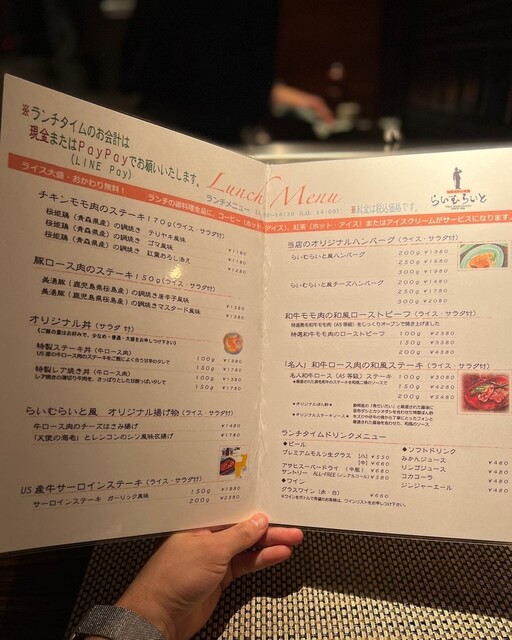 ※ランチタイムのお会計は
現金またはPayPayでお願いいたします。
(LINE Pay)
ライス大盛・おかわり無料！
Lunch Menu
ランチメニュー
※料金は税込価格です。
らいむらいと
チキンモモ肉のステーキ170g(ライス・サラダ付)
桜姫鶏(青森県産)の鋼焼き テリヤキ風味 ¥1180
桜姫鶏(青森県産)の鋼焼き ゴマ風味 ¥1180
桜姫鶏(青森県産)の鋼焼き 紅葉おろし添え ¥1280
豚ロース肉のステーキ150g(ライス・サラダ付)
美湯豚(鹿児島県桜島産)の鋼焼き唐辛子風味 ¥1380
美湯豚(鹿児島県桜島産)の鋼焼きマスタード風味 ¥1380
オリジナル丼(サラダ付)
特製ステーキ丼(牛ロース肉) 100g ¥1380
150g ¥1780
特製レア焼き丼(牛ロース肉) 100g ¥1380
150g ¥1780
らいむらいと風 オリジナル揚げ物(ライス・サラダ付)
牛ロース肉のチーズはさみ揚げ ¥1480
「天使の海老」とレンコンのシン風味衣揚げ ¥1780
US産牛サーロインステーキ(ライス・サラダ付)
サーロインステーキ ガーリック風味 150g ¥1880
200g ¥2380
当店のオリジナルハンバーグ(ライス・サラダ付)
らいむらいと風ハンバーグ 200g ¥1380
250g ¥1680
300g ¥1980
らいむらいと風チーズハンバーグ 200g ¥1480
250g ¥1780
300g ¥2080
和牛モモ肉の和風ローストビーフ(ライス・サラダ付)
特選黒毛和牛モモ肉(A5等級)をじっくりオーブンで焼き上げました
特選和牛モモ肉のローストビーフ 100g ¥2380
150g ¥3380
200g ¥4380
「名人」和牛ロース肉の和風ステーキ(ライス・サラダ付)
名人和牛ロース(A5等級)ステーキ 100g ¥3080
150g ¥4280
200g ¥5480
ランチタイムドリンクメニュー
◆ビール
プレミアムモルツ生グラス [小] ¥550
[中] ¥660
アサヒスーパードライ (中瓶) ¥680
サントリー ALL-FREE(ノンアルコール) ¥580
◆ワイン
グラスワイン(赤・白) ¥660
※ワインボトルで希望のお客様は、ワインリストをお申しつけ下さい。
◆ソフトドリンク
みかんジュース ¥480
リンゴジュース ¥480
コカコーラ ¥480
ジンジャーエール ¥480